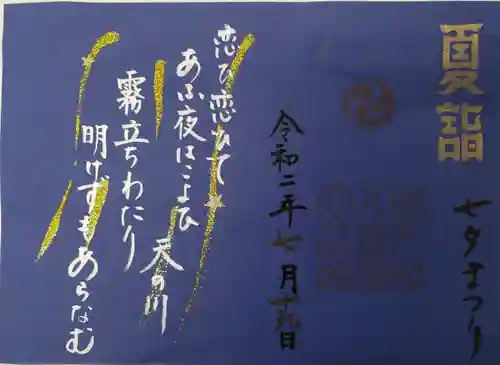 夏詣
七夕まつり
令和二年七月十九日
恋ひ恋ひて
あふ夜はこよひ
天の川
霧立ちわたり
明けずもあらなむ